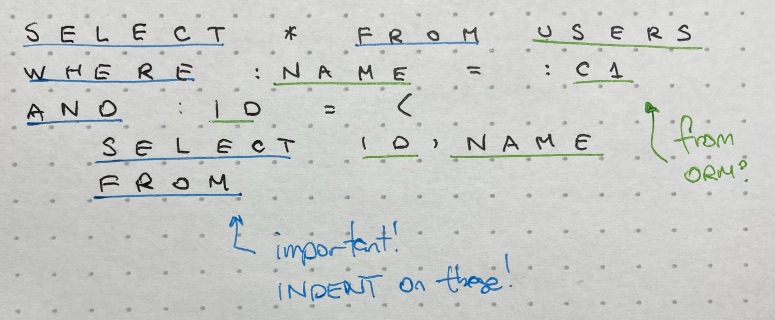 SELECT * FROM USERS
WHERE :NAME = :C1
AND :ID = (
SELECT ID, NAME
FROM
from
ORM?
important!
INDENT on these!